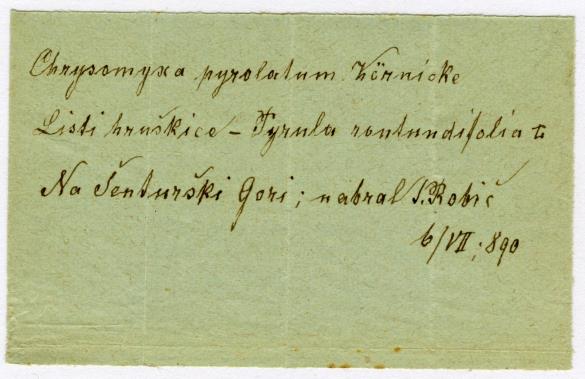 Chrysomyxa pyrolatum Körnicke
Listi hruškice – Pyrula rontundifolia L
Na Šenturški Gori; nabral S. Robič
6/VII; 890